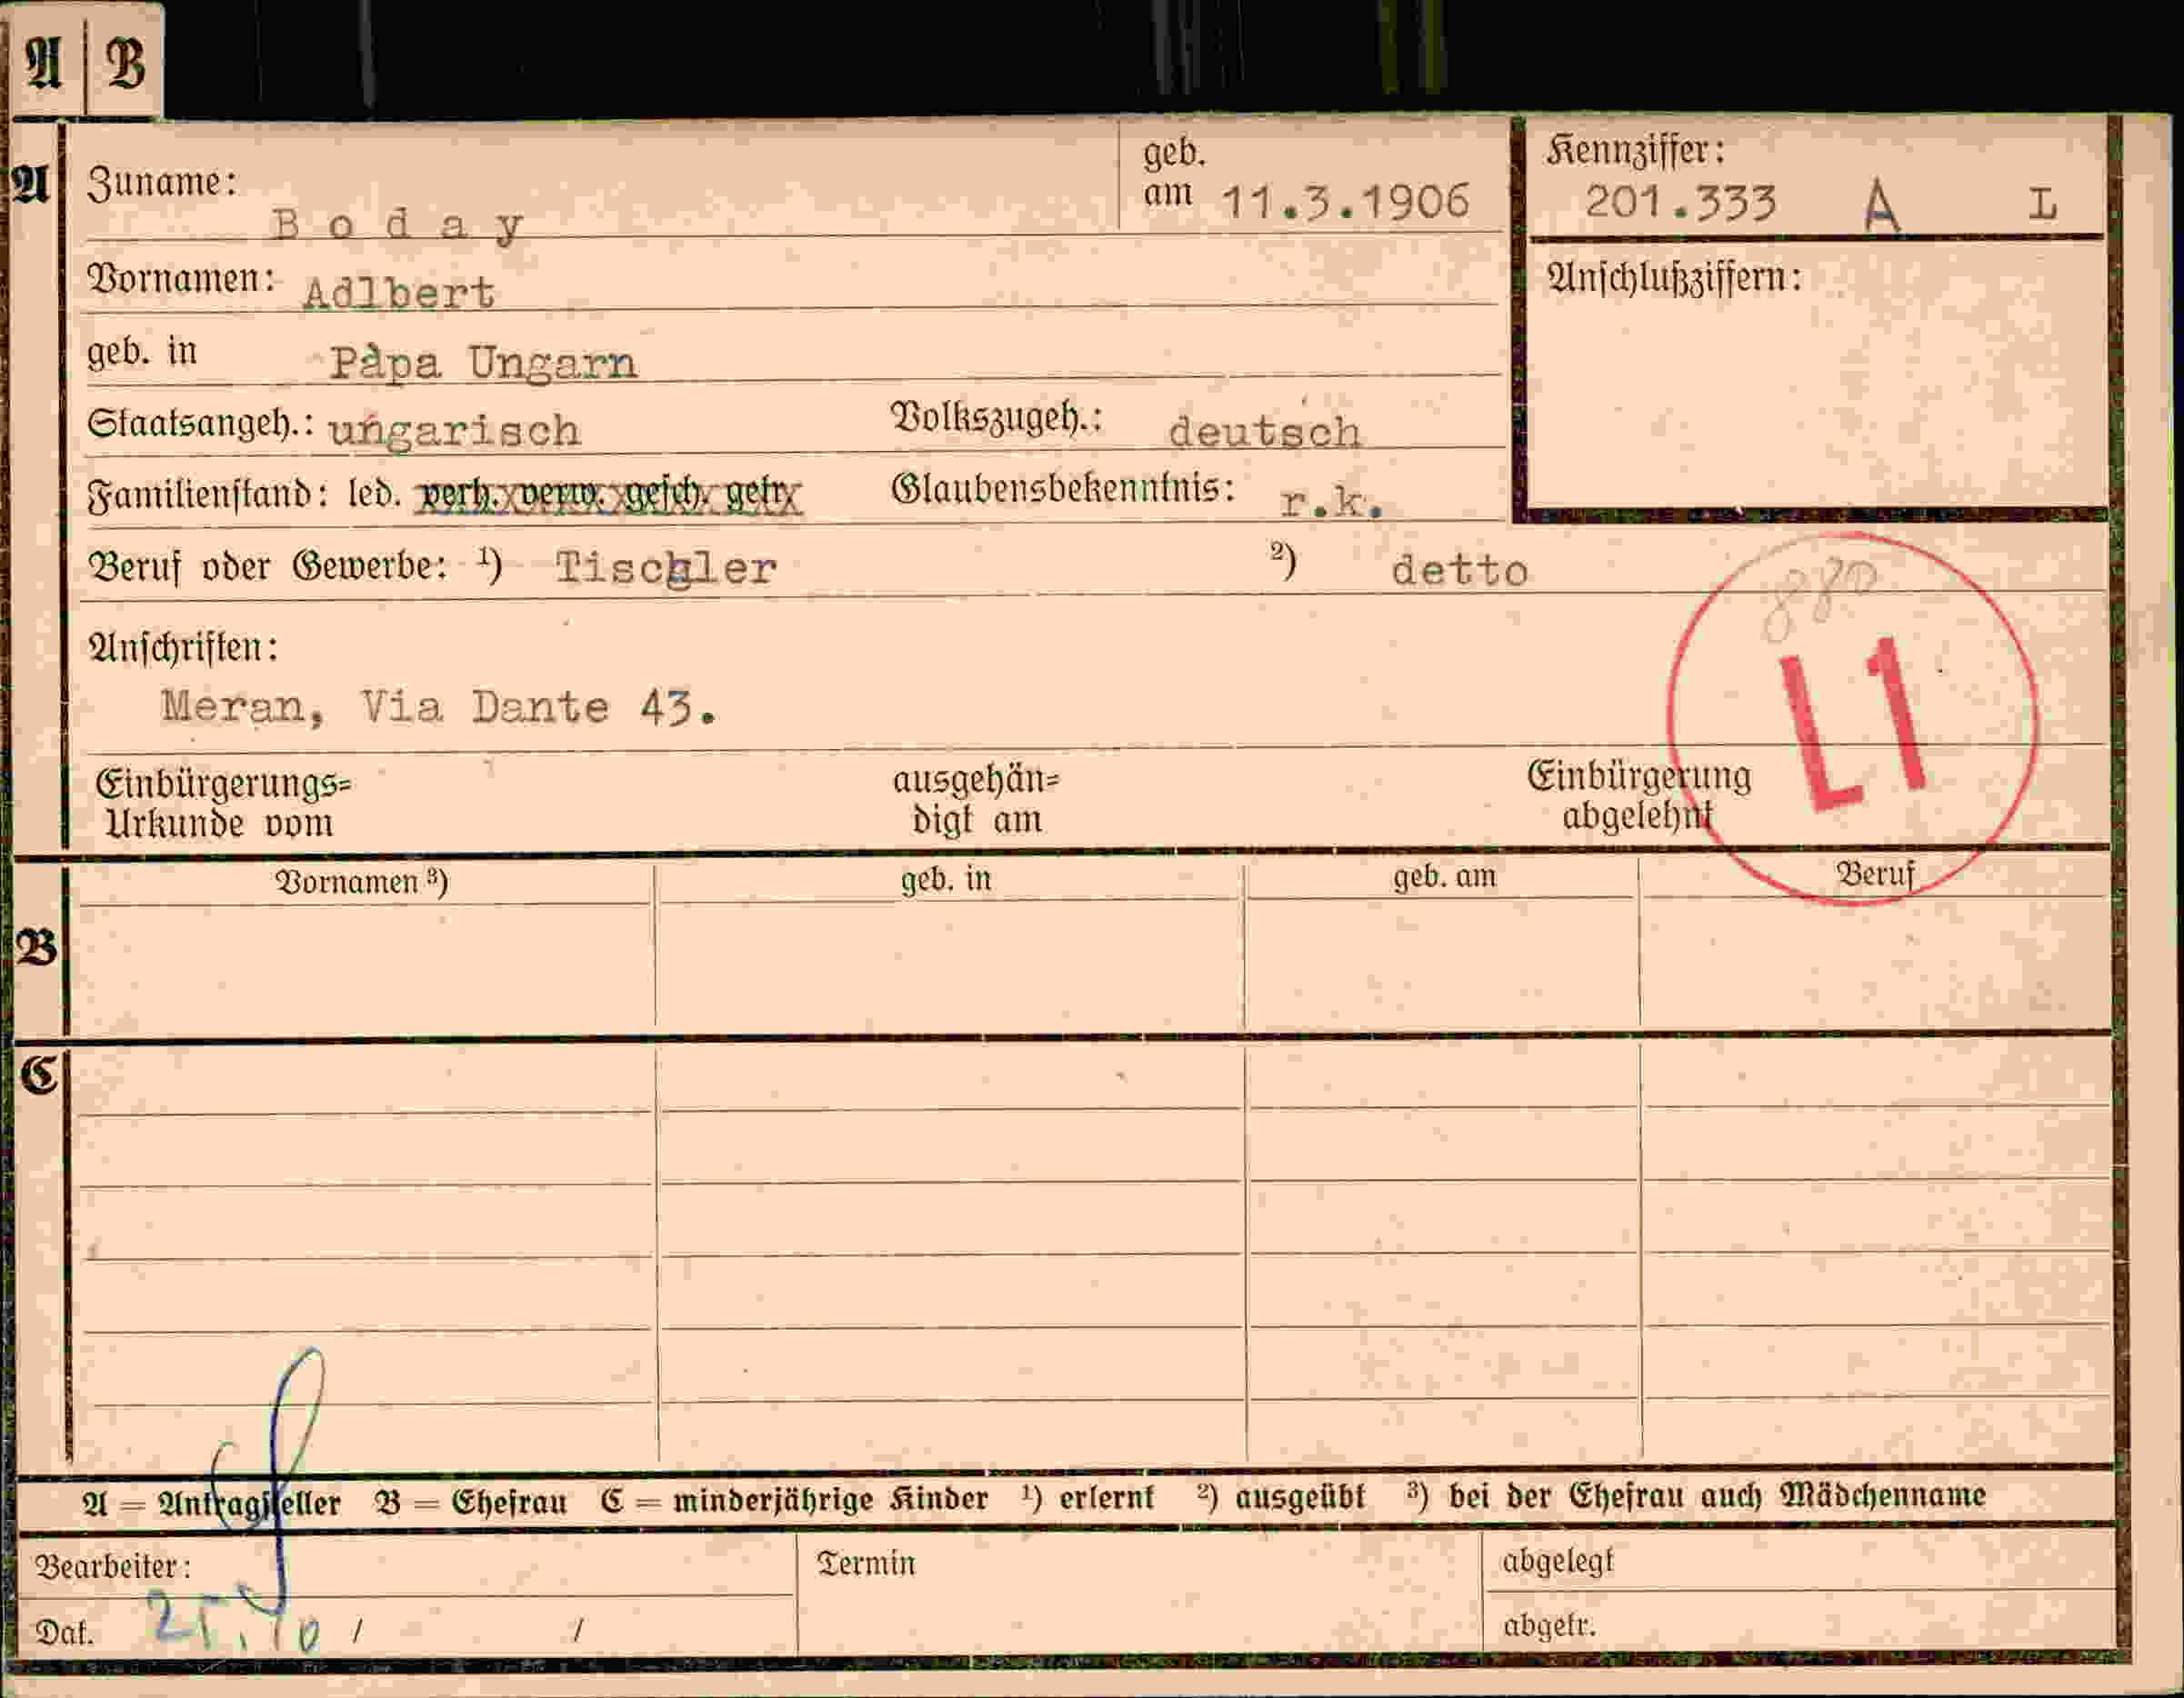 A B
A
Zuname: B o d a y
geb. am 11.3.1906
Kennziffer: 201.333 A L
Vornamen: Adlbert
Anschlußziffern:
geb. in Pàpa Ungarn
Staatsangeh.: ungarisch Volkszugeh.: deutsch
Familienstand: led. verh. verw. gesch. getr. Glaubensbekenntnis: r.k.
Beruf oder Gewerbe: ¹) Tischler ²) detto
880
L1
Anschriften:
Meran, Via Dante 43.
Einbürgerungs=
Urkunde vom
ausgehän=
digt am
Einbürgerung
abgelehnt
B
Vornamen ³) geb. in geb. am Beruf
C
A = Antragsteller B = Ehefrau C = minderjährige Kinder ¹) erlernt ²) ausgeübt ³) bei der Ehefrau auch Mädchenname
Bearbeiter:
Termin
abgelegt
Dat. 25. 10 / /
abgetr.